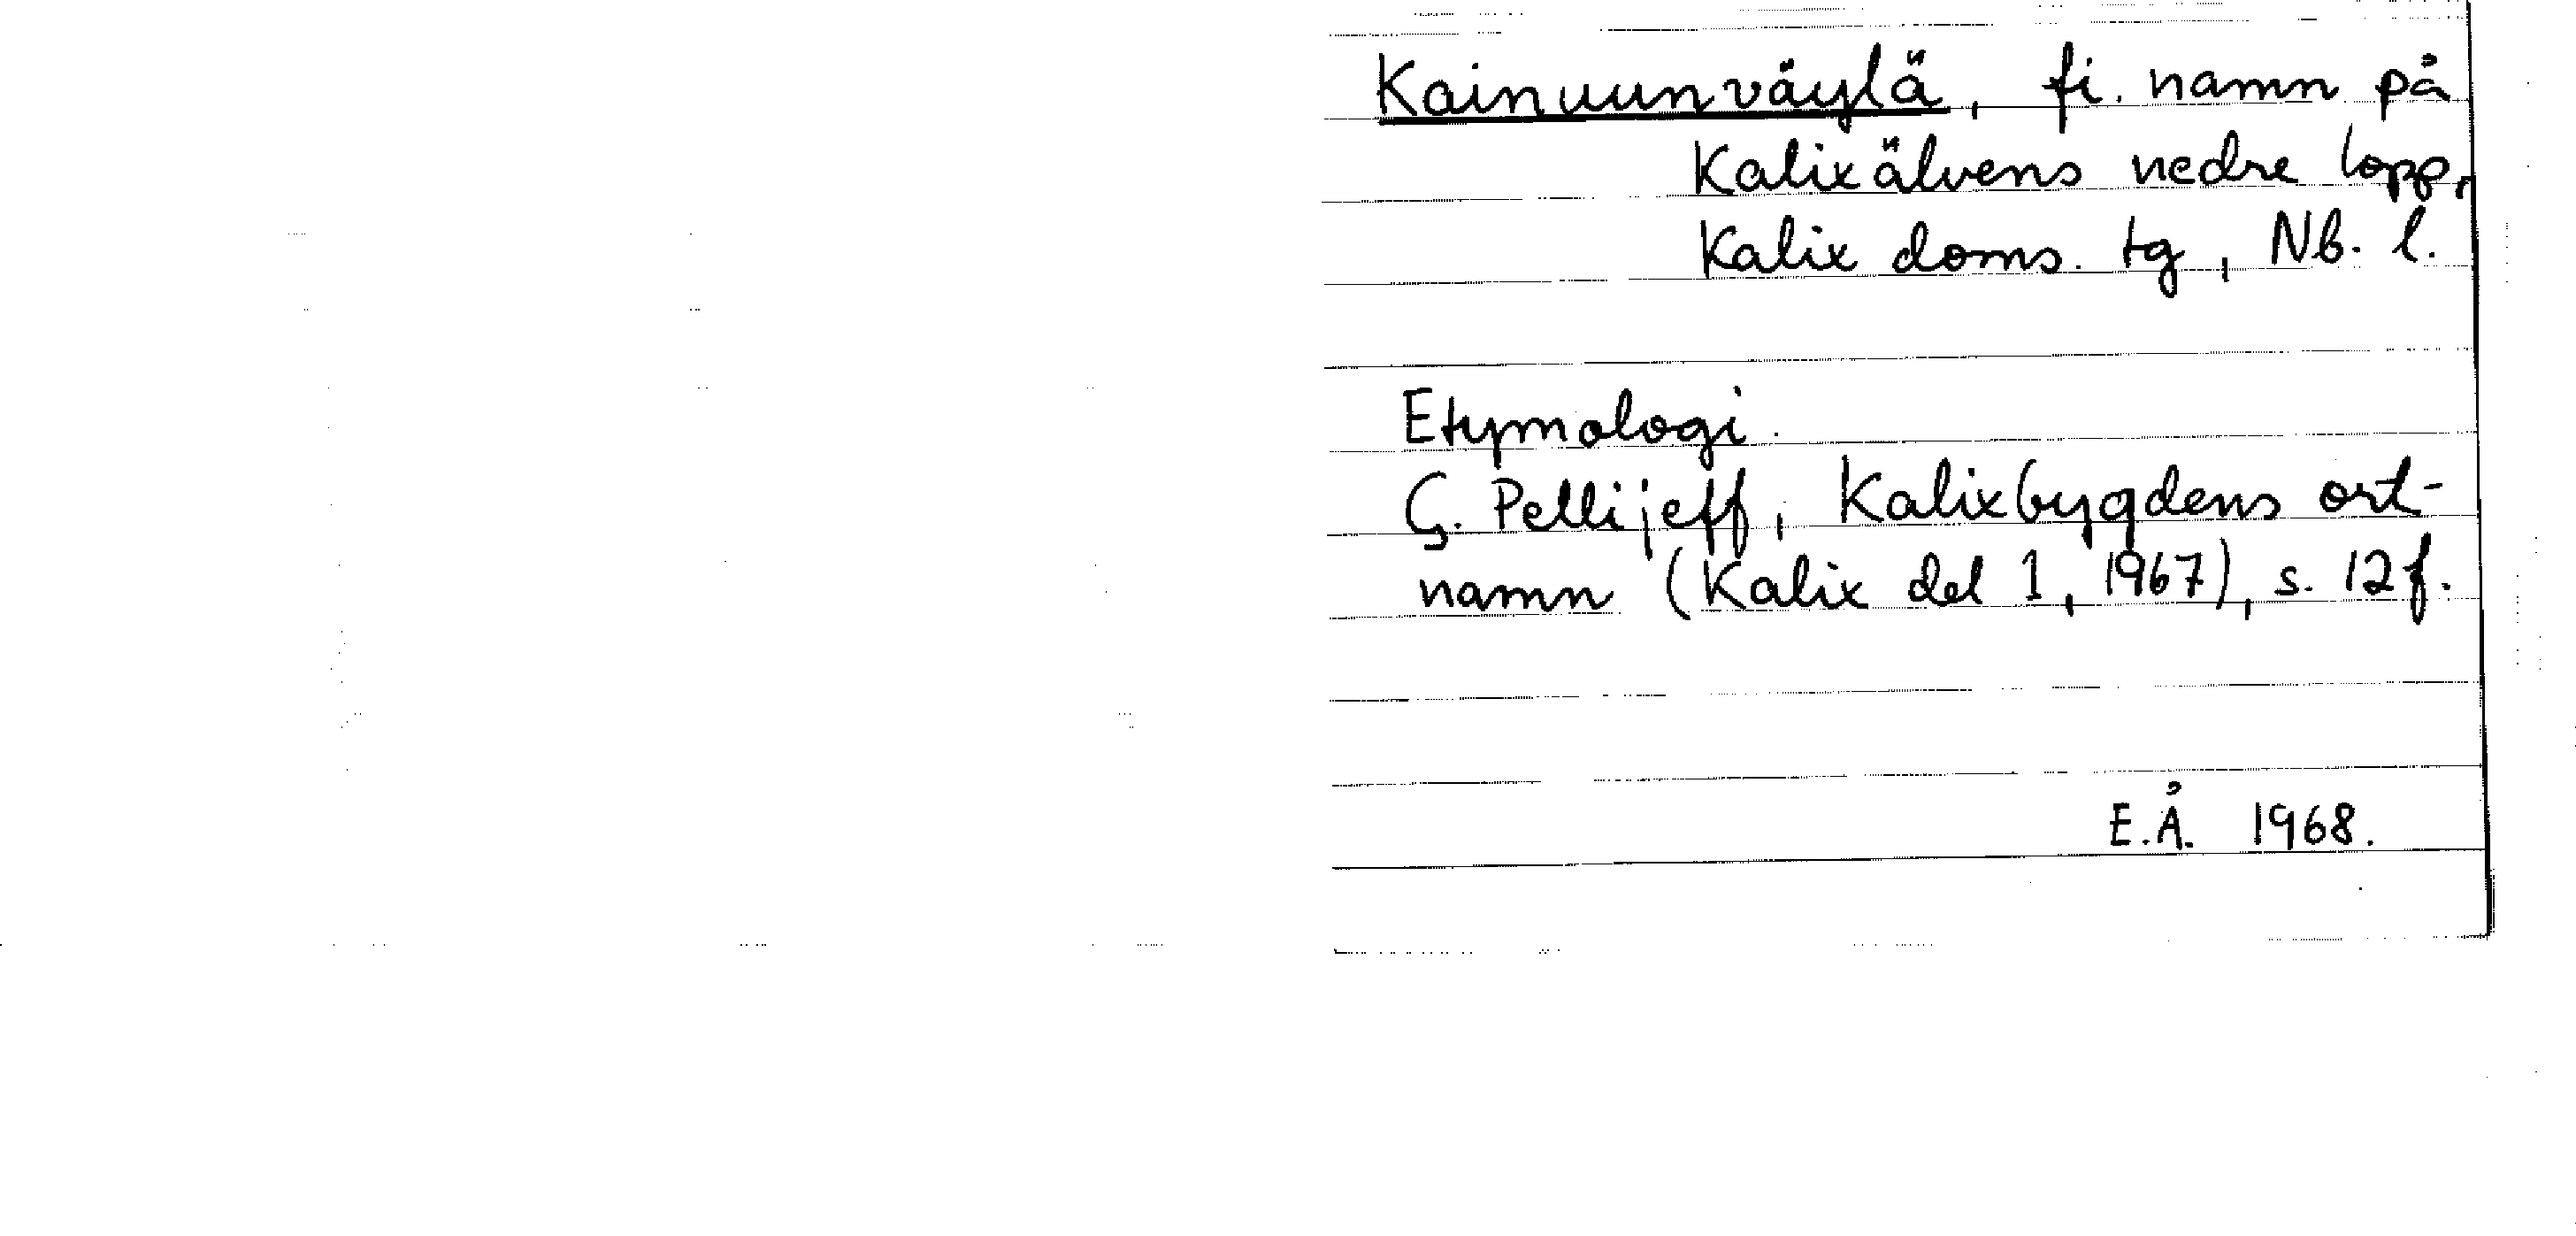 Kainuunväylä, fi. namn på
Kalixälvens nedre lopp,
Kalix doms. tg, Nb. l.
Etymologi.
G. Pellijeff, Kalixbygdens ort-
namn (Kalix del 1, 1967), s. 12 f.
E.Å. 1968.